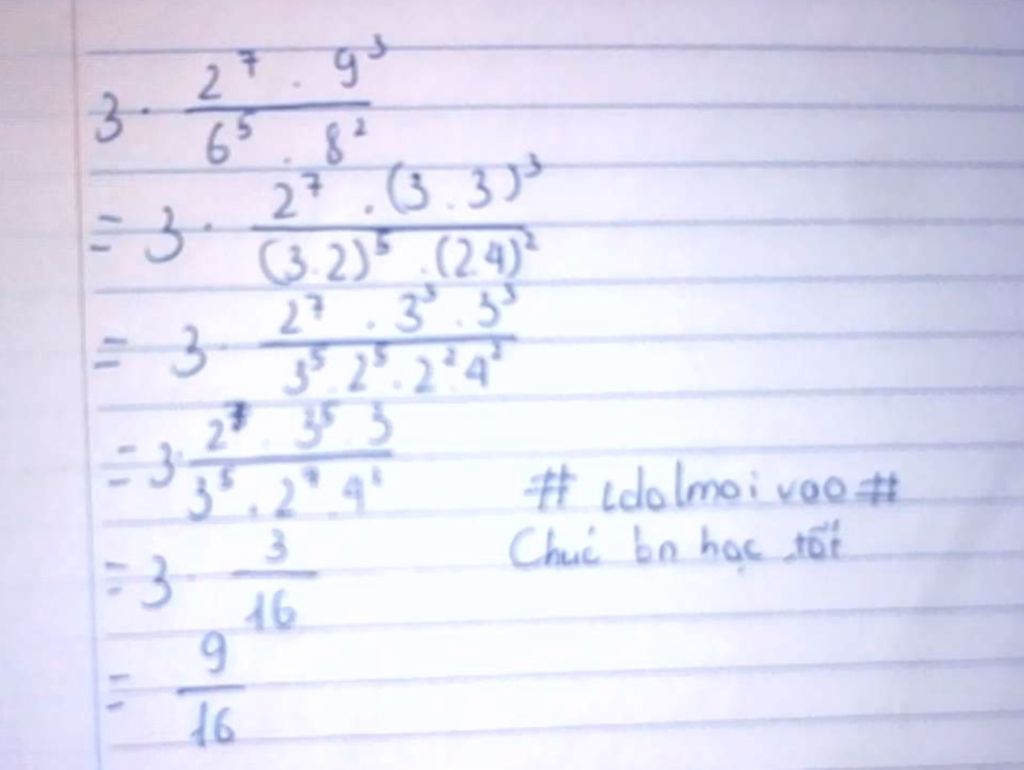 3 · \frac{2^7 . 9^3}{6^5 . 8^2}
= 3 · \frac{2^7 . (3 . 3)^3}{(3.2)^5 . (2.4)^2}
= 3 · \frac{2^7 . 3^3 . 3^3}{3^5 . 2^5 . 2^2 . 4^2}
= 3 · \frac{2^7 . 3^5 . 3}{3^5 . 2^7 . 4^2}
# idolmoi vao #
= 3 · \frac{3}{16}
Chúc bn học tốt
= \frac{9}{16}